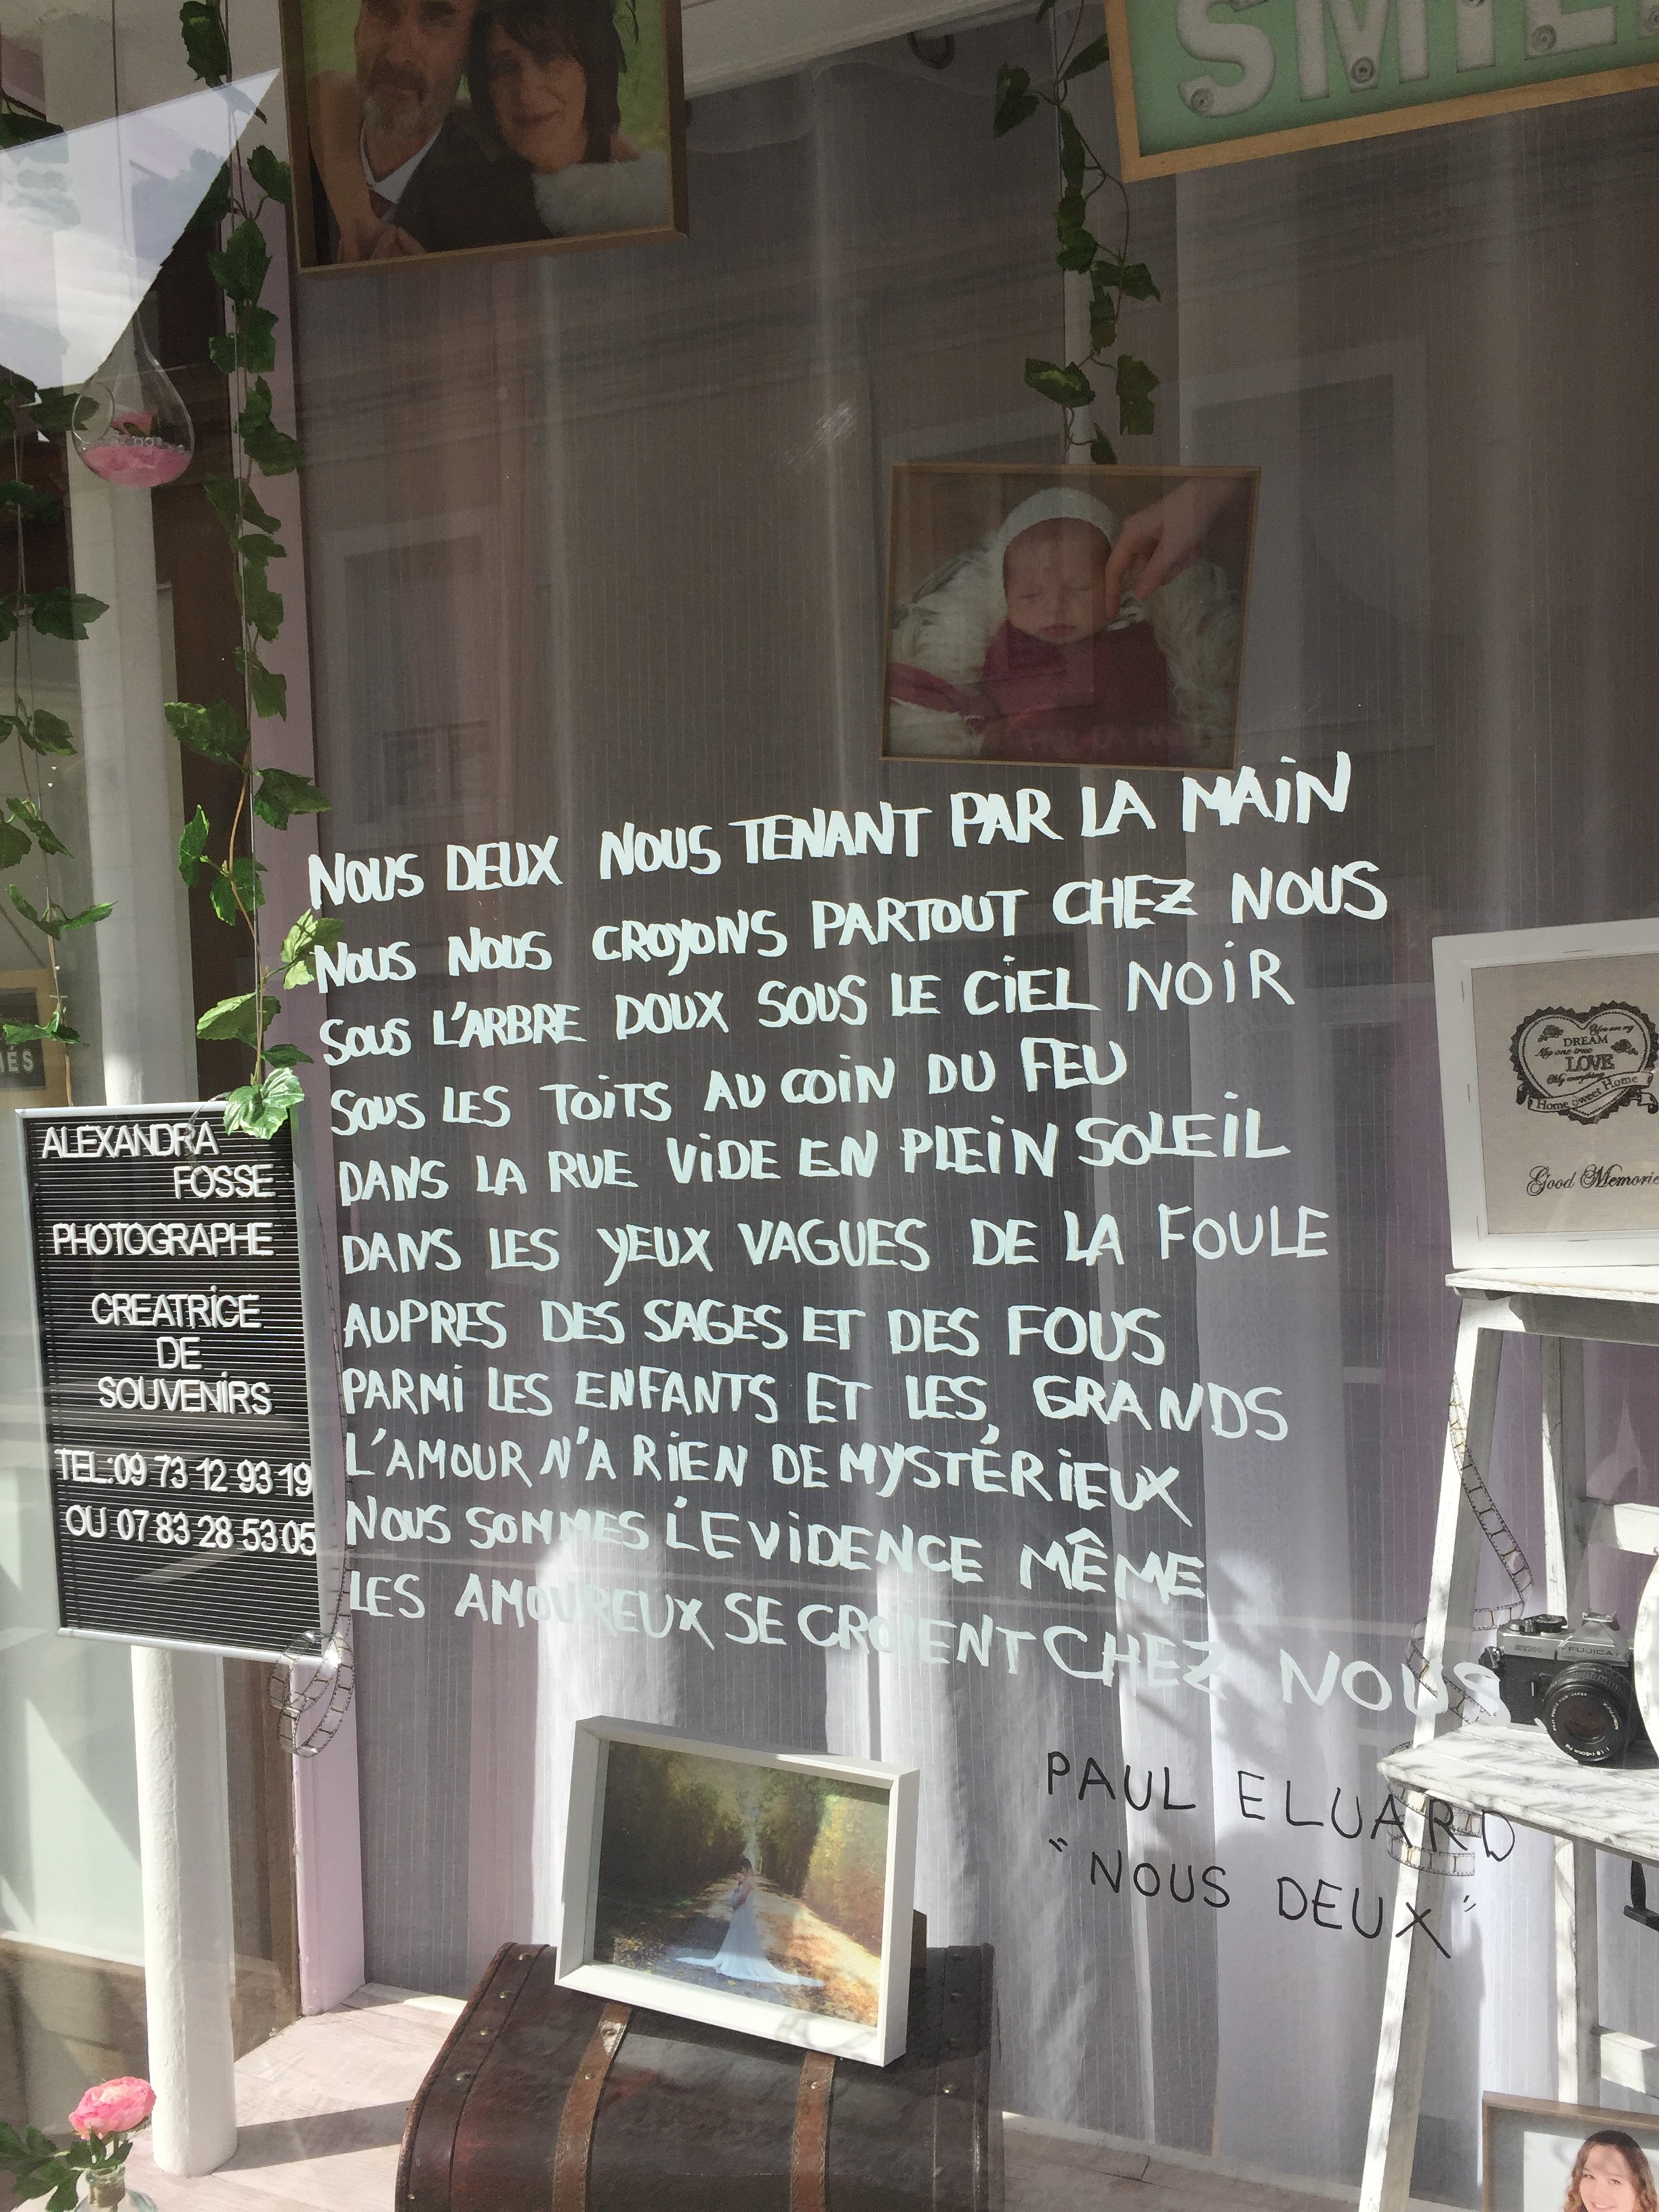 SMILE
NOUS DEUX NOUS TENANT PAR LA MAIN
NOUS NOUS CROYONS PARTOUT CHEZ NOUS
SOUS L'ARBRE DOUX SOUS LE CIEL NOIR
SOUS LES TOITS AU COIN DU FEU
DANS LA RUE VIDE EN PLEIN SOLEIL
DANS LES YEUX VAGUES DE LA FOULE
AUPRES DES SAGES ET DES FOUS
PARMI LES ENFANTS ET LES GRANDS
L'AMOUR N'A RIEN DE MYSTÉRIEUX
NOUS SOMMES L'EVIDENCE MÊME
LES AMOUREUX SE CROIENT CHEZ NOUS
PAUL ELUARD
"NOUS DEUX"
ALEXANDRA
FOSSE
PHOTOGRAPHE
CREATRICE
DE
SOUVENIRS
TEL:09 73 12 93 19
OU 07 83 28 53 05
You are my
DREAM
My one true
LOVE
My everything
Home Sweet Home
Good Memorie
FUJICA